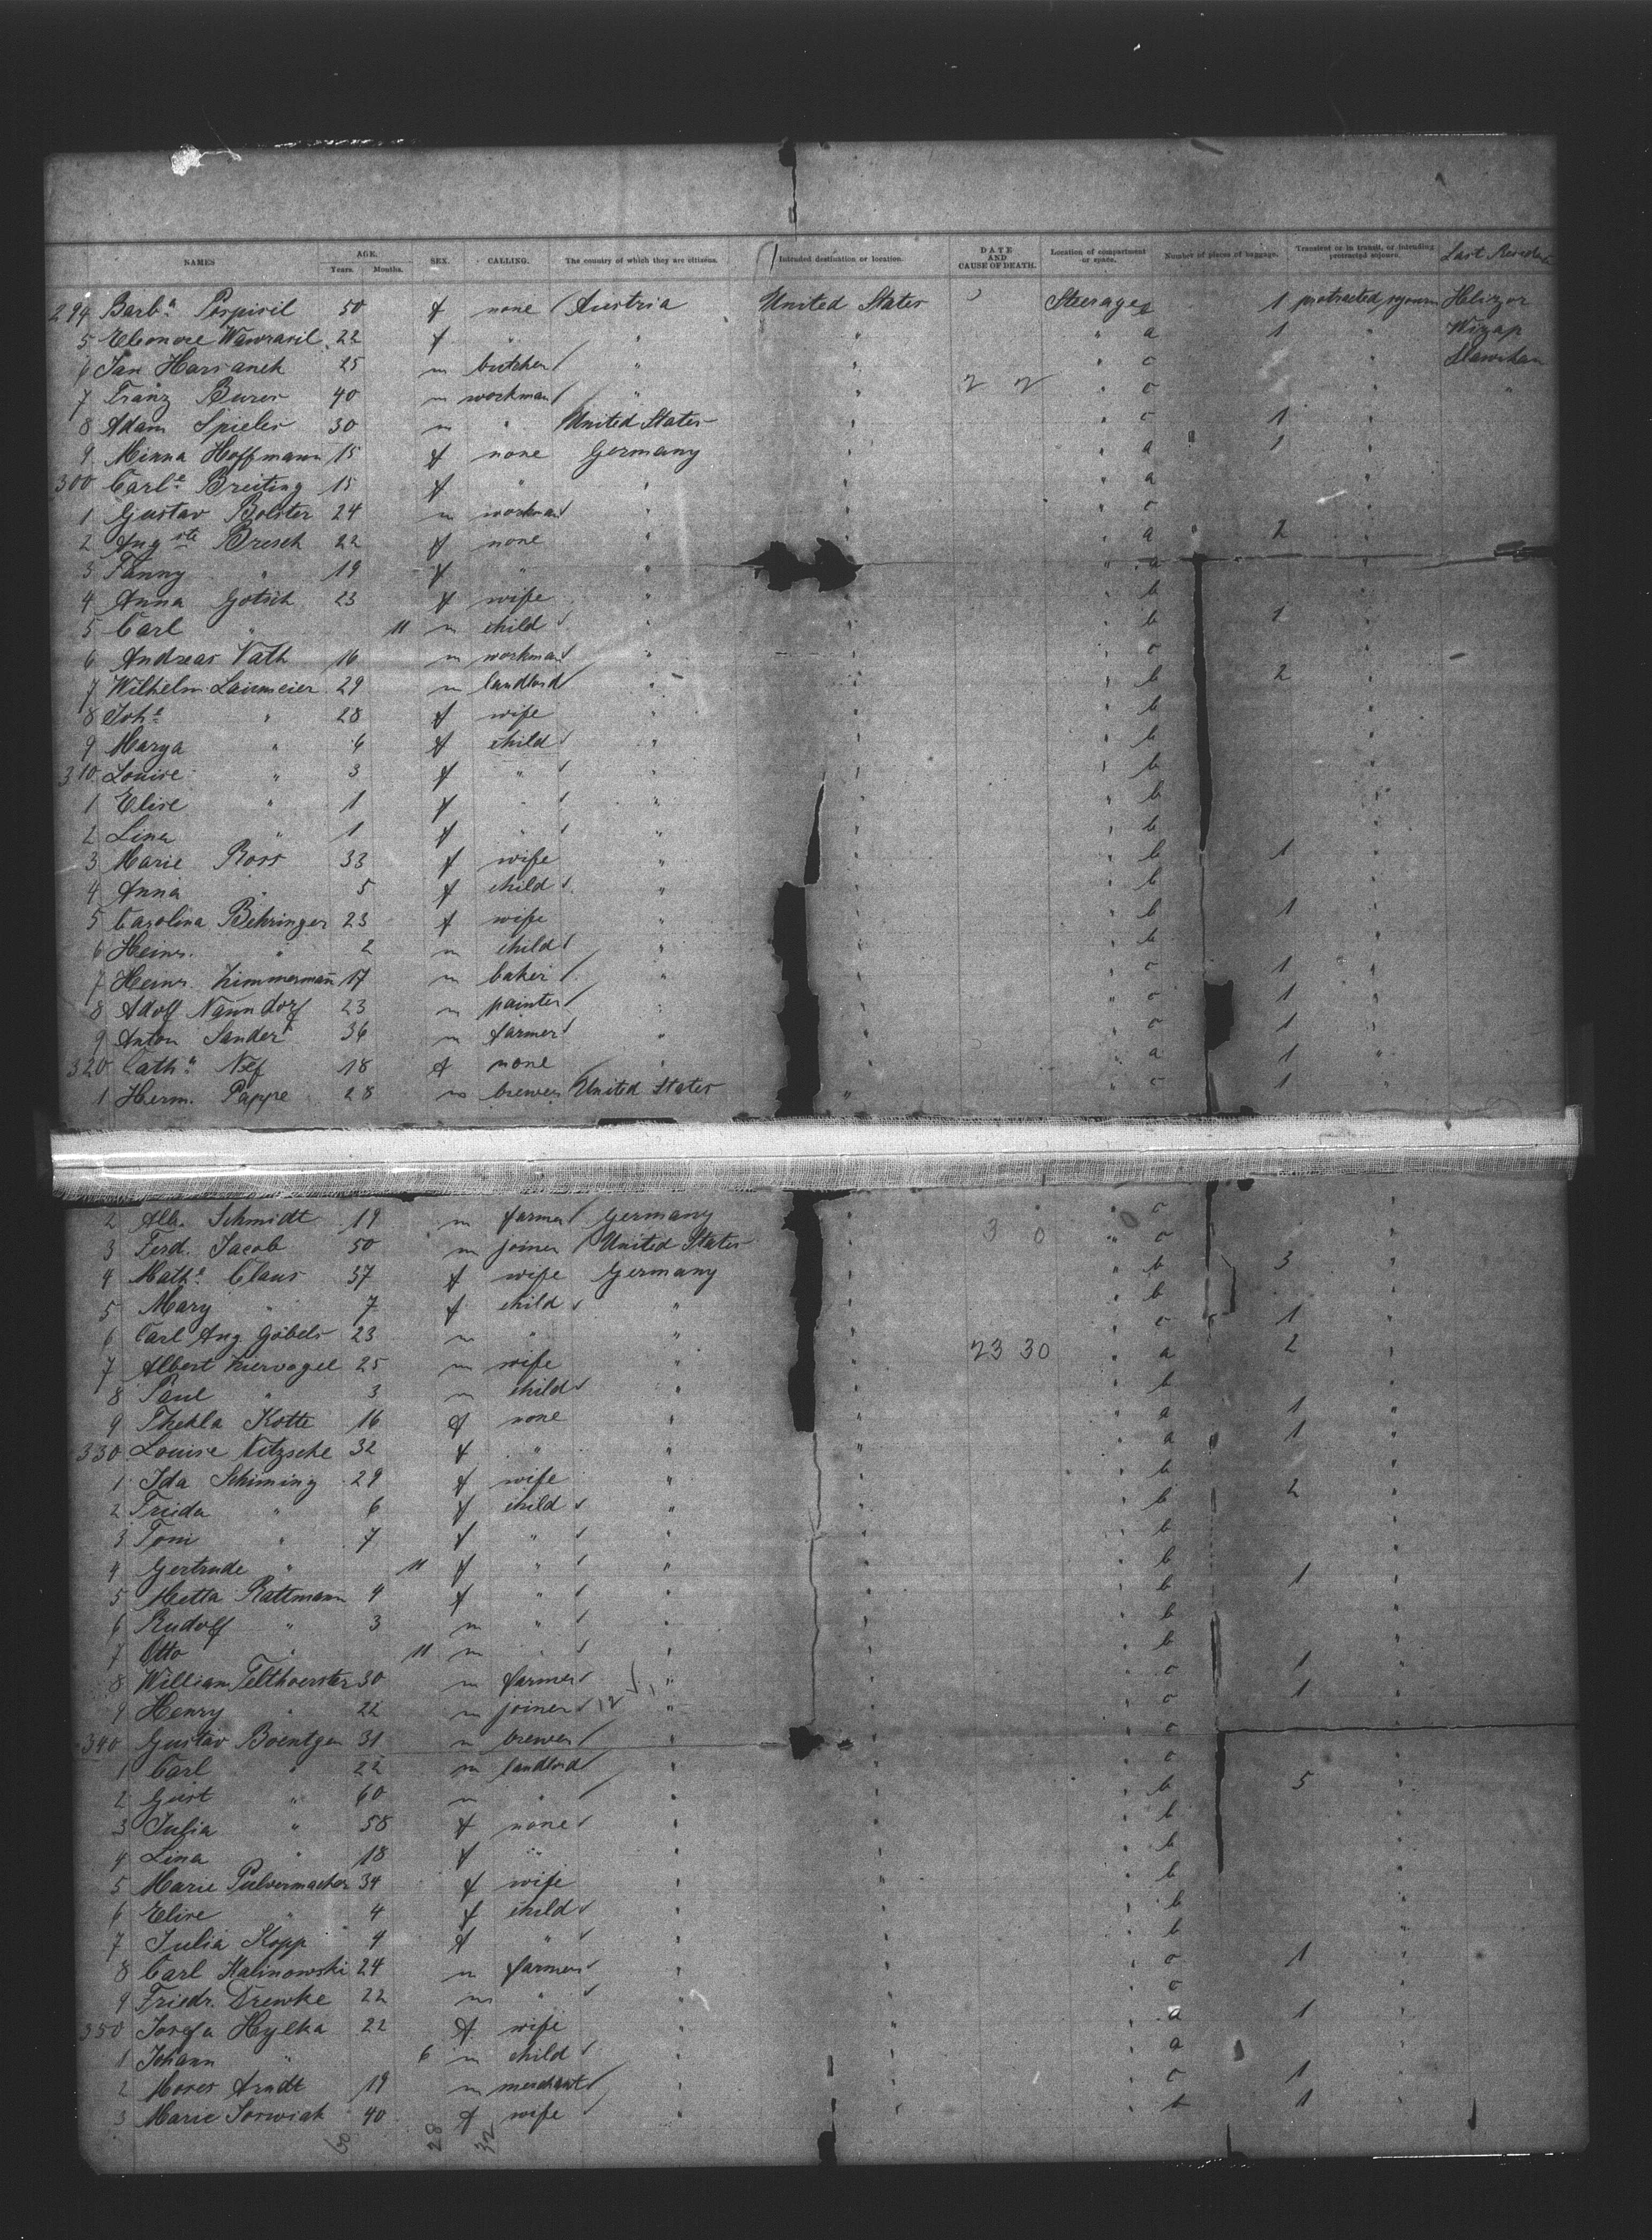 NAMES AGE. Years. Months. SEX. CALLING. The country of which they are citizens. Intended destination or location. DATE AND CAUSE OF DEATH. Location of compartment or space. Number of pieces of baggage. Transient or in transit, or intending protracted sojourn. Last Residence
294 Barb.a Pospisil 50 f none Austria United States Steerage 1 protracted sojourn
5 Eleonore Wawrasil 22 f " " " " a 1 "
6 Jan Harsanek 25 m butcher " " " c "
7 Franz Bures 40 m workman " " 2 2 " c " "
8 Adam Spieler 30 m " United States " " c 1 "
9 Minna Hoffmann 15 f none Germany " " a 1 "
300 Carl.e Breiting 15 f " " " " a "
1 Gustav Bolster 24 m workman " " " c "
2 Aug.ste Bresch 22 f none " " a 2 "
3 Fanny " 19 f " " " a "
4 Anna Götsch 23 f wife " " " b "
5 Carl " 11 m child " " " b 1 "
6 Andreas Vath 16 m workman " " " c "
7 Wilhelm Laumeier 29 m landlord " " " b 2 "
8 Joh.e " 28 f wife " " " b "
9 Marya " 6 f child " " " b "
310 Louise " 3 f " " " " b "
1 Elise " 1 f " " " b "
2 Lina " 1 f " " " b "
3 Marie Ross 33 f wife " " b 1 "
4 Anna " 5 f child " " b "
5 Carolina Behringer 23 f wife " " b 1 "
6 Heinr. " 2 m child " " b "
7 Heinr. Zimmermann 17 m baker " " c 1 "
8 Adolf Naundorf 23 m painter " " c 1 "
9 Anton Sander 36 m farmer " " c 1 "
320 Cath.a Nef 18 f none " " a 1 "
1 Herm. Pappe 28 m brewer United States " " c 1 "
2 Alb. Schmidt 19 m farmer Germany " " c
3 Ferd. Jacob 50 m joiner United States 3 0 " c
4 Math.e Claus 37 f wife Germany " b 3
5 Mary " 7 f child " " b
6 Carl Aug. Göbels 23 m " " " c 1 "
7 Albert Ziervogel 25 m wife " 23 30 " a 2 "
8 Paul " 3 m child " " b "
9 Thekla Kotte 16 f none " " " a 1 "
330 Louise Nitzsche 32 f " " " " a 1 "
1 Ida Schiming 29 f wife " " " b "
2 Frieda " 6 f child " " " b 2 "
3 Toni " 7 f " " " " b "
4 Gertrude " 11 f " " " " b "
5 Metta Rattmann 4 f " " " " b 1 "
6 Rudolf " 3 m " " " " b "
7 Otto " 11 m " " " " b "
8 William Telthoerster 30 m farmer " " " c 1 "
9 Henry " 22 m joiner " " " c 1 "
340 Gustav Boentgen 31 m brewer " " " c
1 Carl " 22 m landlord " " " c "
2 Gust " 60 m " " " " b 5 "
3 Julia " 58 f none " " " b "
4 Lina " 18 f " " " " b "
5 Marie Pulvermacher 34 f wife " " " b "
6 Elise " 4 f child " " " b "
7 Julia Kopp 4 f " " " " b "
8 Carl Kalinowski 24 m farmer " " " c 1 "
9 Friedr. Drewke 22 m " " " " c "
350 Josefa Hylka 22 f wife " " " a 1 "
1 Johann " 6 m child " " " a "
2 Moses Arndt 19 m merchant " " " c 1 "
3 Marie Sorwiak 40 f wife " " " b 1 "
60 28 32